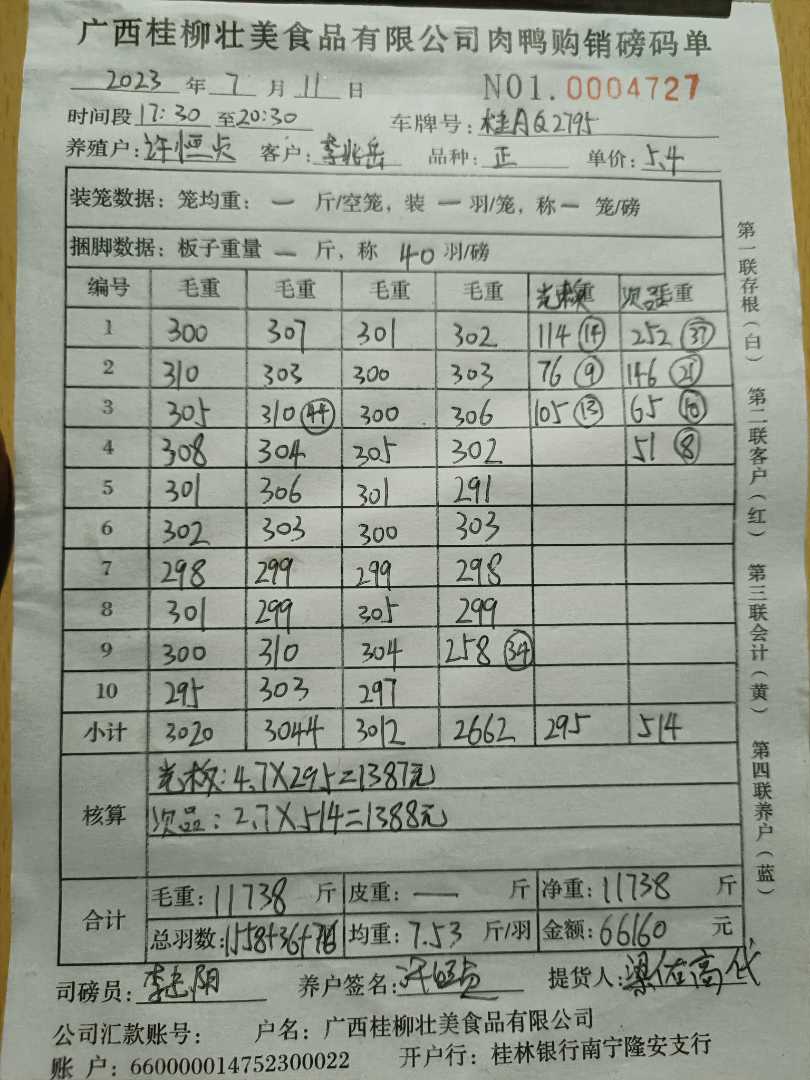 广西桂柳壮美食品有限公司肉鸭购销磅码单
2023 年 7 月 11 日 NO1. 0004727
时间段 17:30 至 20:30 车牌号: 桂AQ2795
养殖户: 许恒贞 客户: 李兆岳 品种: 正 单价: 5.4
装笼数据: 笼均重: 一 斤/空笼, 装 一 羽/笼, 称 一 笼/磅
捆脚数据: 板子重量 一 斤, 称 40 羽/磅
编号 毛重 毛重 毛重 毛重 重 次品 毛重
1 300 307 301 302 114 (14) 252 (37)
2 310 303 300 303 76 (9) 146 (21)
3 305 310 (44) 300 306 105 (13) 65 (10)
4 308 304 305 302 51 (8)
5 301 306 301 291
6 302 303 300 303
7 298 299 299 298
8 301 299 305 299
9 300 310 304 258 (34)
10 295 303 297
小计 3020 3044 3012 2662 295 514
核算
4.7×295=1387元
次品: 2.7×514=1388元
合计
毛重: 11738 斤 皮重: 一 斤 净重: 11738 斤
总羽数: 1558+36+76 均重: 7.53 斤/羽 金额: 66160 元
司磅员: 李 阳 养户签名: 许恒贞 提货人: 梁佐高代
公司汇款账号: 户名: 广西桂柳壮美食品有限公司
账 户: 660000014752300022 开户行: 桂林银行南宁隆安支行
第一联存根(白) 第二联客户(红) 第三联会计(黄) 第四联养户(蓝)